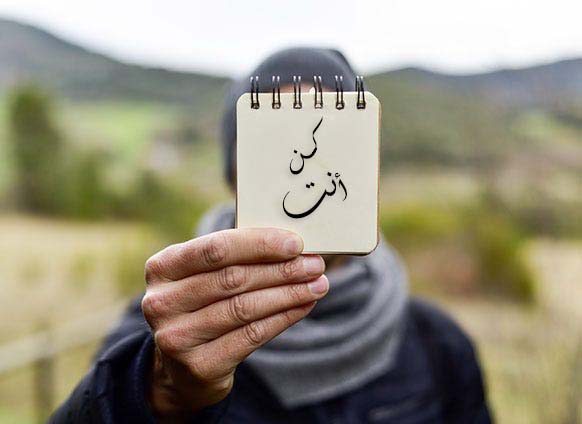 كن
أنت